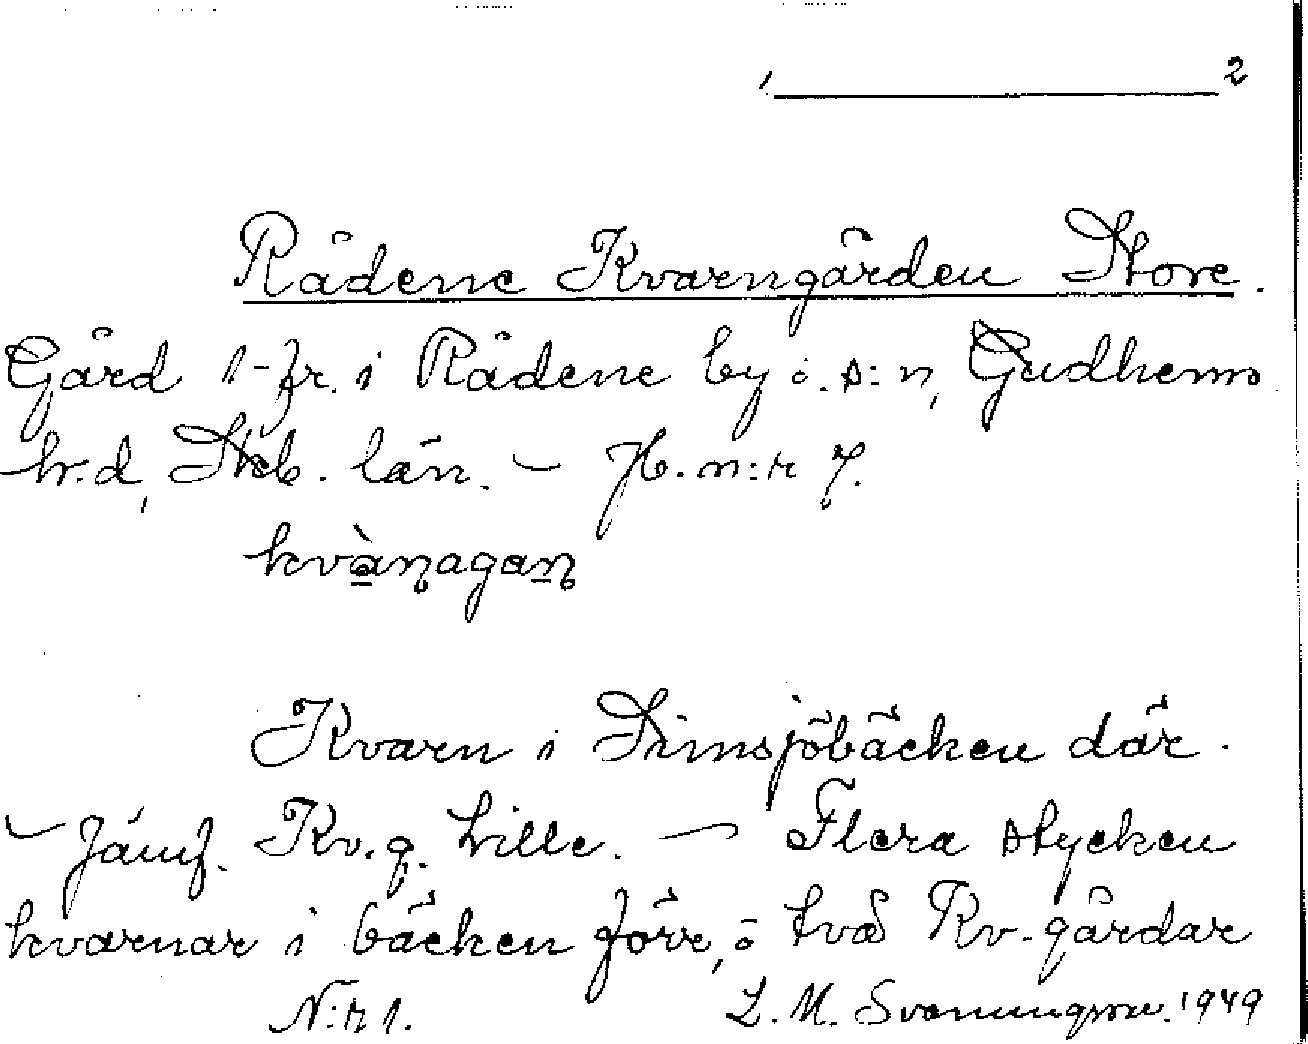 2
Rådene Kvarngården Store.
Gård 1-fr. i Rådene by o. s:n, Gudhems
hr.d, Skb. län. – H. n:r 7.
kvànagan
Kvarn i Simsjöbäcken där.
– Jämf. Kv.g. Lille. – Flera stycken
kvarnar i bäcken förr, o två Kv-gårdar
N:r 1. L. M. Svenungsson. 1949